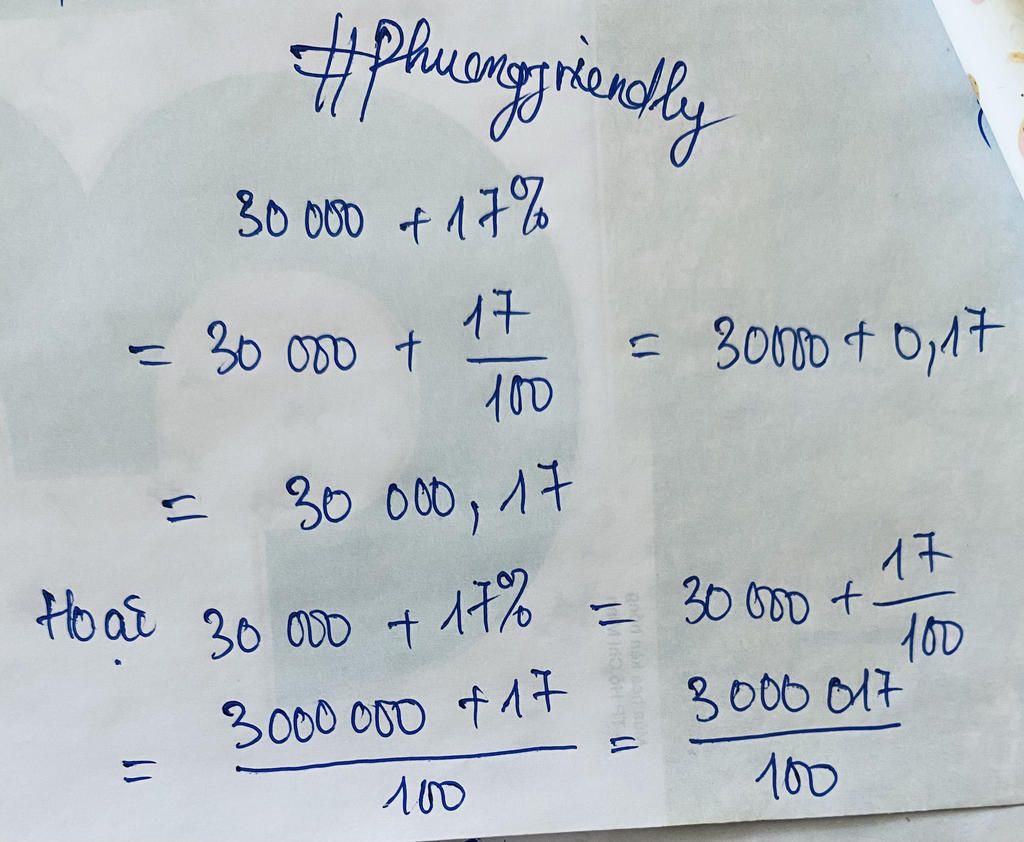 #Phuongfriendly
30 000 + 17%
= 30 000 + 17/100 = 30000 + 0,17
= 30 000,17
Hoặc 30 000 + 17% = 30 000 + 17/100
= 3000 000 + 17/100 = 3000 017/100